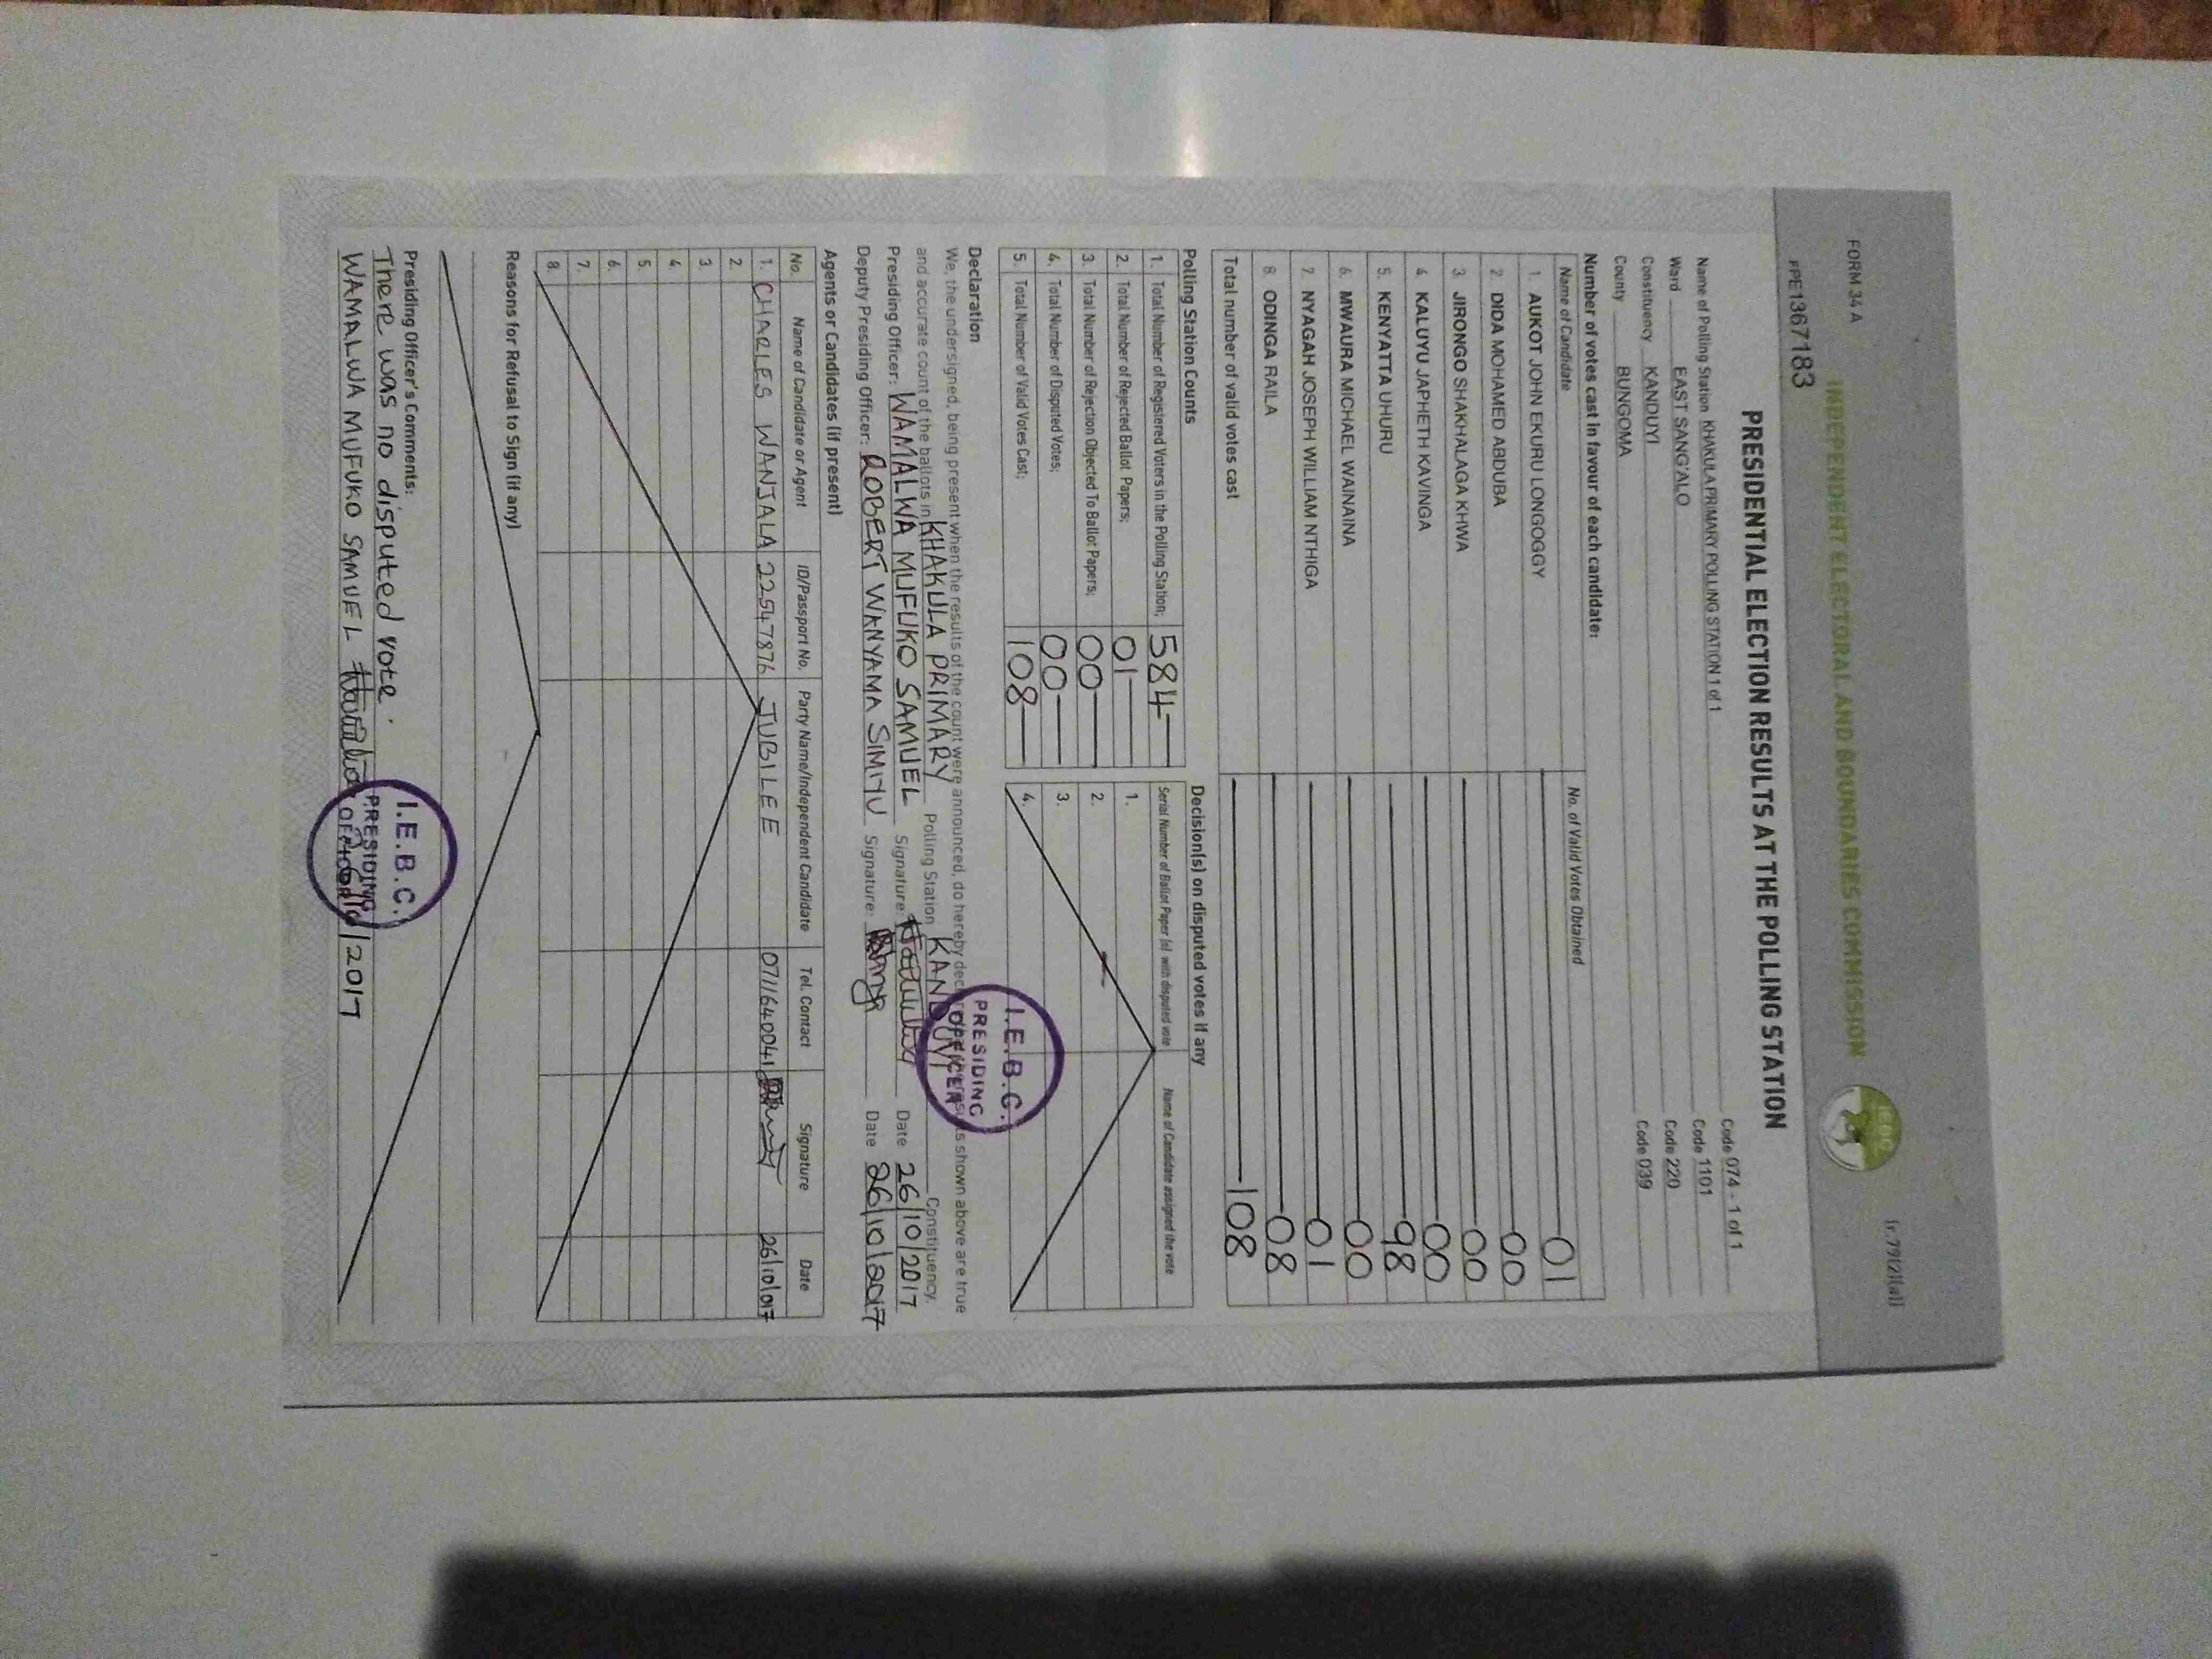 FORM 34 A
(r.79(2)(a))
INDEPENDENT ELECTORAL AND BOUNDARIES COMMISSION
IEBC
FPE1367183
PRESIDENTIAL ELECTION RESULTS AT THE POLLING STATION
Name of Polling Station KHAKULA PRIMARY POLLING STATION 1 of 1 Code 074 - 1 of 1
Ward EAST SANG'ALO Code 1101
Constituency KANDUYI Code 220
County BUNGOMA Code 039
Number of votes cast in favour of each candidate:
Name of Candidate No. of Valid Votes Obtained
1. AUKOT JOHN EKURU LONGOGGY 01
2. DIDA MOHAMED ABDUBA 00
3. JIRONGO SHAKHALAGA KHWA 00
4. KALUYU JAPHETH KAVINGA 00
5. KENYATTA UHURU 98
6. MWAURA MICHAEL WAINAINA 00
7. NYAGAH JOSEPH WILLIAM NTHIGA 01
8. ODINGA RAILA 08
Total number of valid votes cast 108
Polling Station Counts
1. Total Number of Registered Voters in the Polling Station; 584
2. Total Number of Rejected Ballot Papers; 01
3. Total Number of Rejection Objected To Ballot Papers; 00
4. Total Number of Disputed Votes; 00
5. Total Number of Valid Votes Cast; 108
Decision(s) on disputed votes if any
Serial Number of Ballot Paper (s) with disputed vote Name of Candidate assigned the vote
1.
2.
3.
4.
Declaration
We, the undersigned, being present when the results of the count were announced, do hereby declare that the results shown above are true
and accurate count of the ballots in KHAKULA PRIMARY Polling Station KANDUYI Constituency.
Presiding Officer: WAMALWA MUFUKO SAMUEL Signature: Date 26/10/2017
Deputy Presiding Officer: ROBERT WANYAMA SIMIYU Signature: Date 26/10/2017
I.E.B.C.
PRESIDING
OFFICER
Agents or Candidates (if present)
No. Name of Candidate or Agent ID/Passport No. Party Name/Independent Candidate Tel. Contact Signature Date
1. CHARLES WANJALA 22547876 JUBILEE 0711640041 26/10/017
2.
3.
4.
5.
6.
7.
8.
Reasons for Refusal to Sign (if any)
Presiding Officer's Comments:
There was no disputed vote.
WAMALWA MUFUKO SAMUEL /2017
I.E.B.C.
PRESIDING
OFFICER